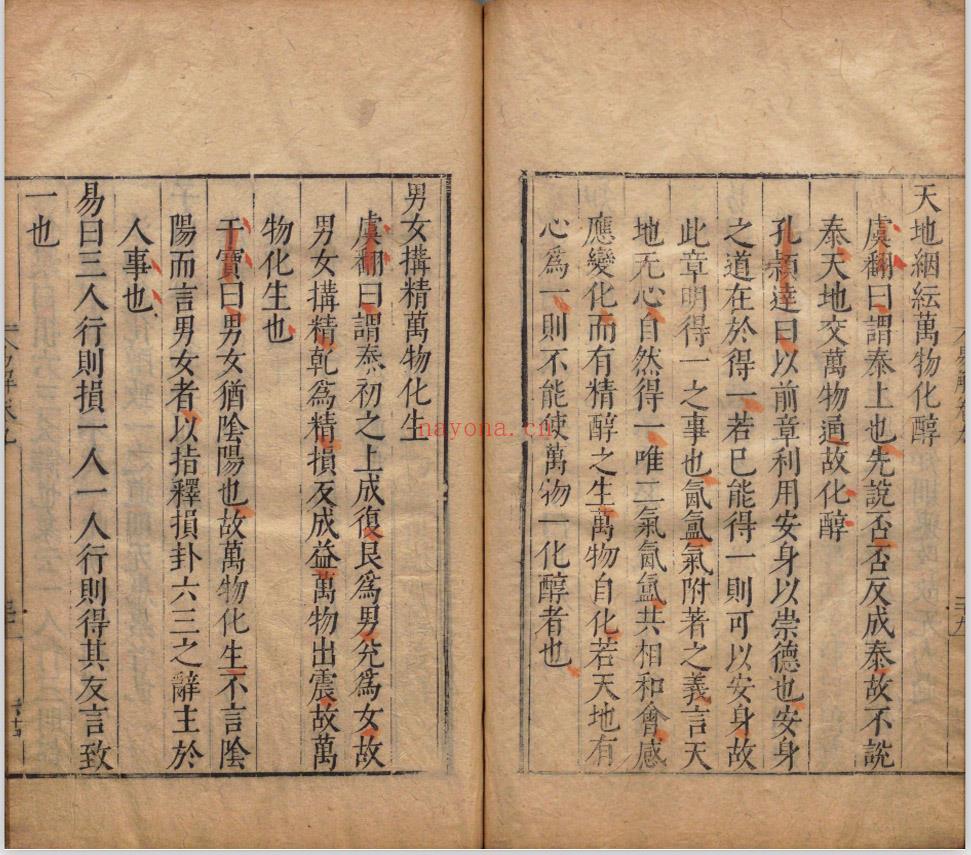 天地絪縕萬物化醇
虞翻曰謂泰上也先說否否反成泰故不說
泰天地交萬物通故化醇
孔穎達曰以前章利用安身以崇德也安身
之道在於得一若已能得一則可以安身故
此章明得一之事也氤氳氣附著之義言天
地无心自然得一唯二氣氤氳共相和會感
應變化而有精醇之生萬物自化若天地有
心爲一則不能使萬物一化醇者也
男女搆精萬物化生
虞翻曰謂泰初之上成復艮爲男兊爲女故
男女搆精乾爲精損反成益萬物出震故萬
物化生也
干寶曰男女猶陰陽也故萬物化生不言陰
陽而言男女者以指釋損卦六三之辭主於
人事也
易曰三人行則損一人一人行則得其友言致
一也
nayona.cn